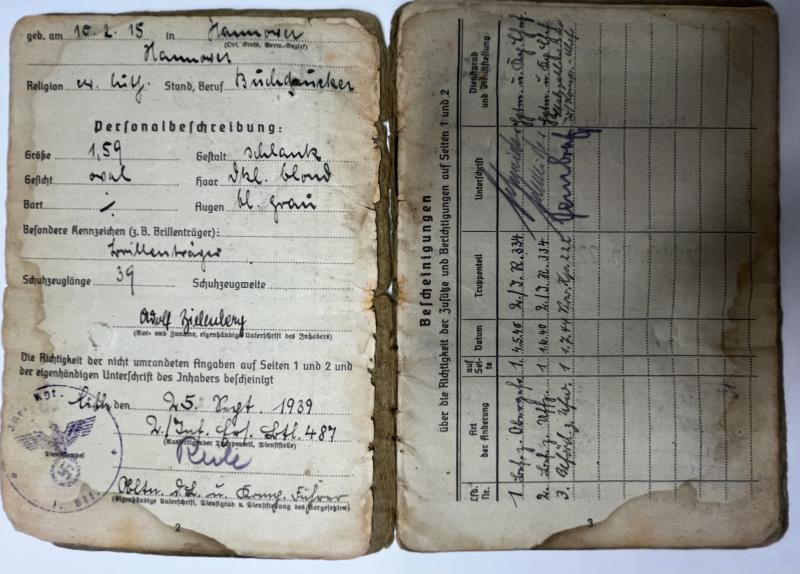 geb. am 10.2.15 in Hannover
(Ort, Kreis, Verw.-Bezirk)
Hannover
Religion ev. luth. Stand, Beruf Buchdrucker
Personalbeschreibung:
Größe 1,59 Gestalt schlank
Gesicht oval Haar dkl. blond
Bart Augen bl. grau
Besondere Kennzeichen (z. B. Brillenträger):
Brillenträger
Schuhzeuglänge 39 Schuhzeugweite
Adolf
(Vor- und Zuname, eigenhändige Unterschrift des Inhabers)
Die Richtigkeit der nicht umrandeten Angaben auf Seiten 1 und 2 und
der eigenhändigen Unterschrift des Inhabers bescheinigt
den 25. Sept. 1939
2./Inf. Ers. Btl. 487
(Ausfertigender Truppenteil, Dienststelle)
Dienststempel
Obltn. d. L. u. Komp. Führer
(Eigenhändige Unterschrift, Dienstgrad u. Dienststellung des Vorgesetzten)
2
Bescheinigungen
über die Richtigkeit der Zusätze und Berichtigungen auf Seiten 1 und 2
Lfd. Nr. Art der Änderung auf Seite Datum Truppenteil Unterschrift Dienstgrad und Dienststellung
1. Bef. z. Obergefr. 1. 4.5.40 2./I.R. 334. Hptm. u.
2. Bef. z. Uffz. 1. 1.6.40 2./I.R. 334. Hptm. u.
3. 1. 1.7.44
3